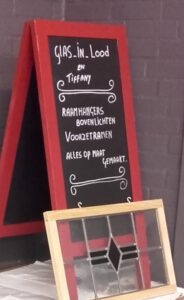 Glas_in_Lood
en
Tiffany
Raamhangers
Bovenlichten
Voorzetramen
Alles op maat
gemaakt.